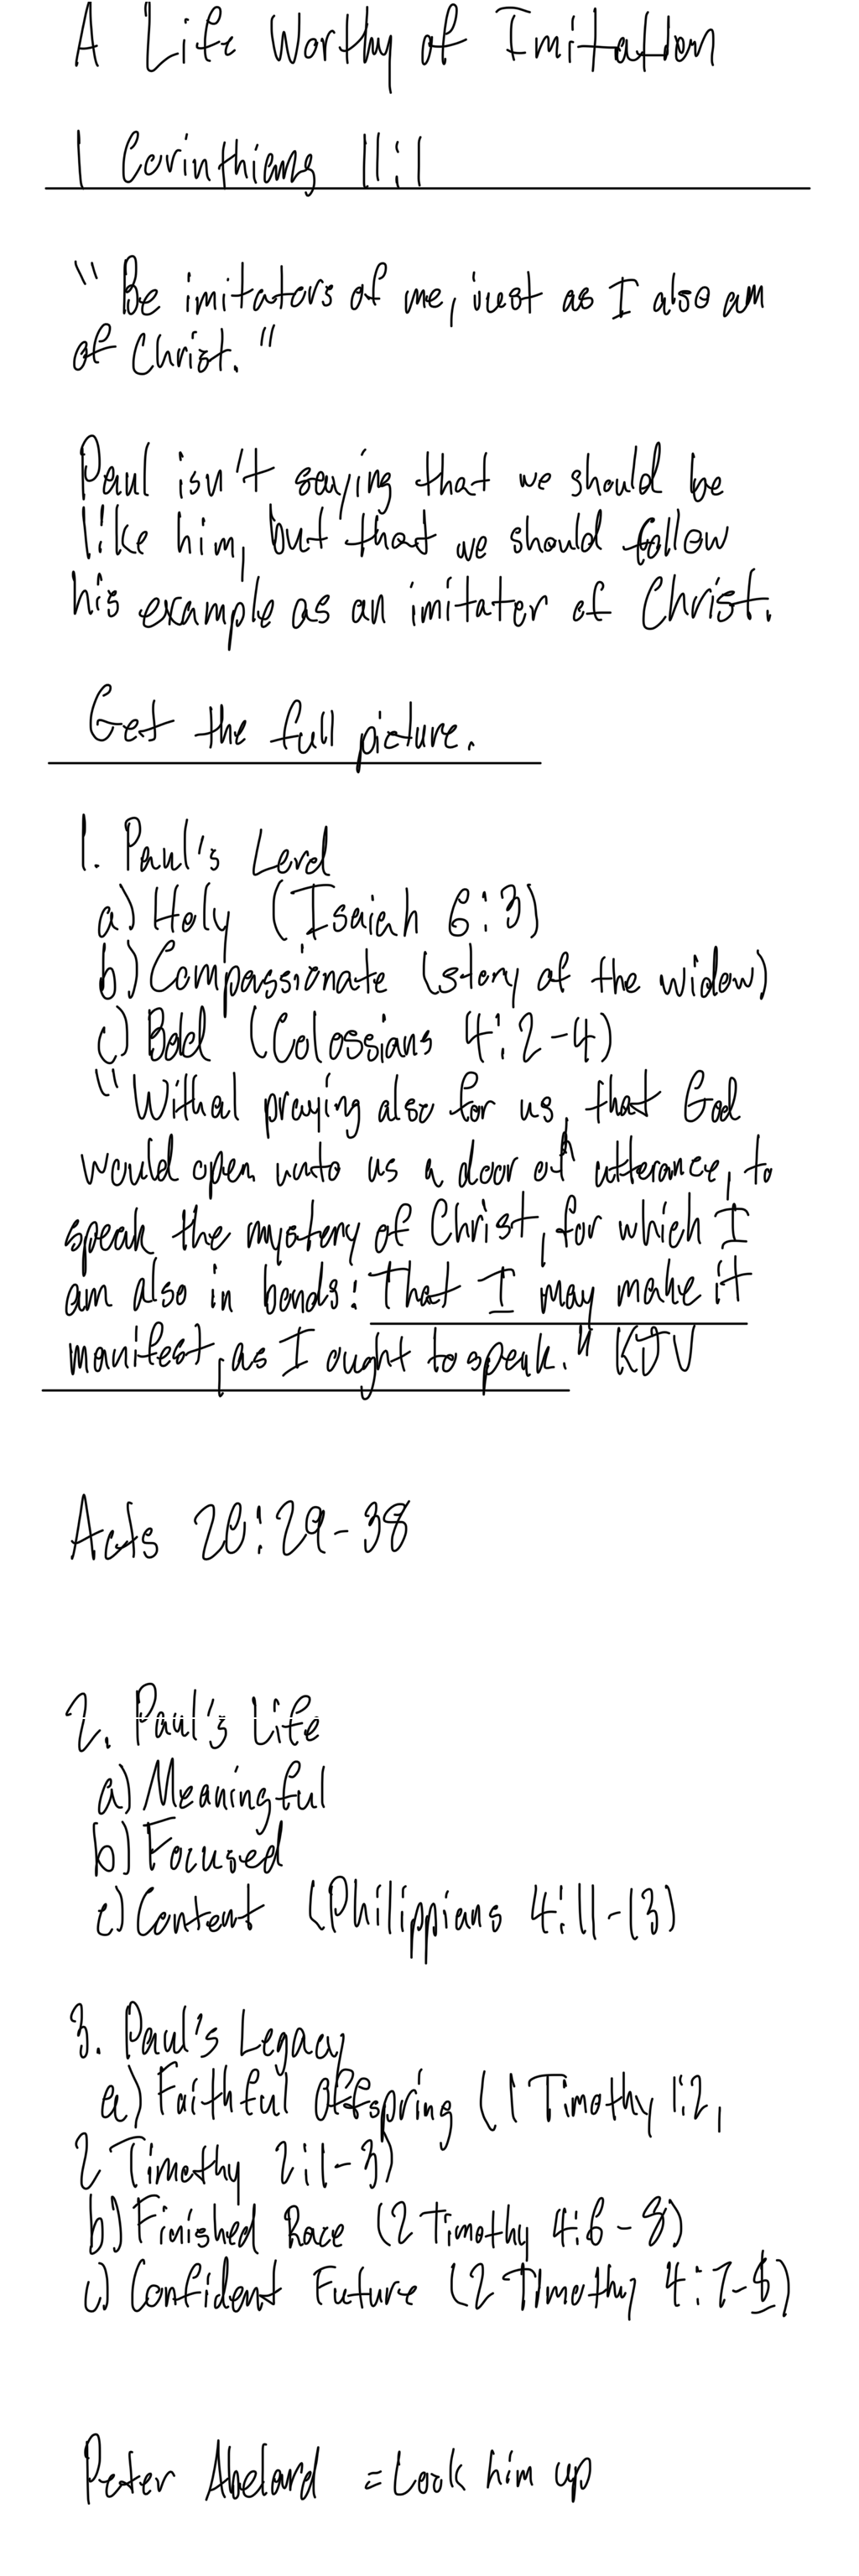 A Life Worthy of Imitation
1 Corinthians 11:1
"Be imitators of me, just as I also am
of Christ."
Paul isn't saying that we should be
like him, but that we should follow
his example as an imitator of Christ.
Get the full picture.
1. Paul's Lord
a) Holy (Isaiah 6:3)
b) Compassionate (story of the widow)
c) Bold (Colossians 4:2-4)
"Withal praying also for us, that God
would open unto us a door of utterance, to
speak the mystery of Christ, for which I
am also in bonds: That I may make it
manifest, as I ought to speak." KJV
Acts 20:29-38
2. Paul's Life
a) Meaningful
b) Focused
c) Content (Philippians 4:11-13)
3. Paul's Legacy
a) Faithful Offspring (1 Timothy 1:2,
2 Timothy 2:1-3)
b) Finished Race (2 Timothy 4:6-8)
c) Confident Future (2 Timothy 4:7-8)
Peter Abelard = Look him up